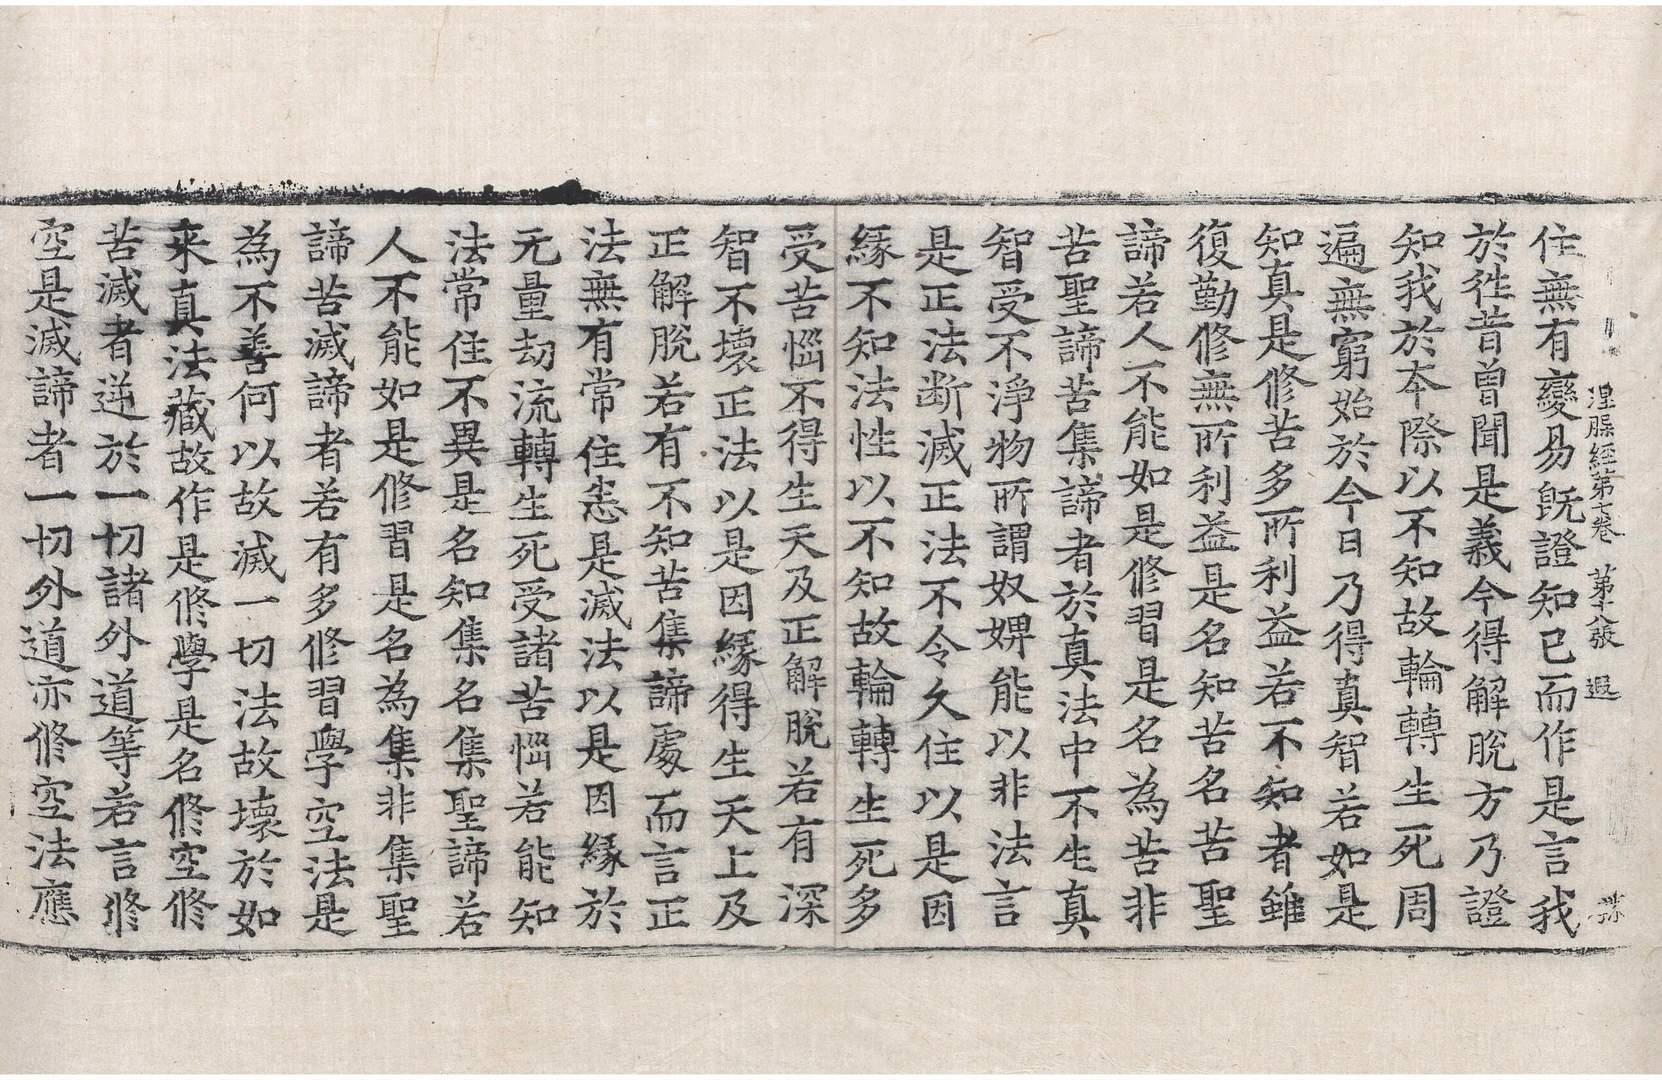 涅槃經第七卷　第十八張　遐
住無有變易旣證知已而作是言我
於徃昔曾聞是義今得解脫方乃證
知我於夲際以不知故輪轉生死周
遍無窮始於今日乃得真智若如是
知真是修苦多所利益若不知者雖
復勤修無所利益是名知苦名苦聖
諦若人不能如是修習是名為苦非
苦聖諦苦集諦者於真法中不生真
智受不淨物所謂奴婢能以非法言
是正法断滅正法不令久住以是因
緣不知法性以不知故輪轉生死多
受苦惱不得生天及正解脫若有深
智不壞正法以是因緣得生天上及
正解脫若有不知苦集諦處而言正
法無有常住悉是滅法以是因緣於
无量劫流轉生死受諸苦惱若能知
法常住不異是名知集名集聖諦若
人不能如是修習是名為集非集聖
諦苦滅諦者若有多修習學空法是
為不善何以故滅一切法故壞於如
来真法藏故作是修學是名修空修
苦滅者逆於一切諸外道等若言修
空是滅諦者一切外道亦修空法應